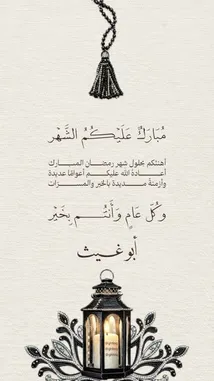 مُبَارَكٌ عَلَيْكُمُ الشَّهْرَ
أهنئكم بحلول شهر رمضان المبارك
أعاده الله عليكم أعوامًا عديدة
وأزمنةً مديدة بالخير والمسرات
وَكُلَّ عَامٍ وَأَنْتُمْ بِخَيْرٍ
أبو غيث